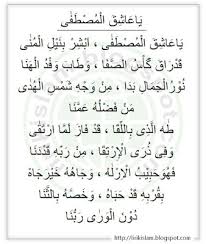 يَا عَاشِقَ الْمُصْطَفَى
يَا عَاشِقَ الْمُصْطَفَى ، اَبْشِرْ بِنَيْلِ الْمُنَى
قَدْ رَاقَ كَأْسُ الصَّفَا ، وَطَابَ وَفْدُ الْهَنَا
نُوْرُ الْجَمَالِ بَدَا ، مِنْ وَجْهِ شَمْسِ الْهُدَى
مَنْ فَضْلُهُ عَمَّنَا
طٰهَ الَّذِى بِاللِّقَا ، قَدْ فَازَ لَمَّا ارْتَقَى
وَفِى ذُرَى الْاِرْتِقَا ، مِنْ رَبِّهِ قَدْ دَنَا
فَهُوَ حَبِيْبُ الْاِلٰهْ ، وَجَاهُهُ خَيْرُ جَاهْ
بِقُرْبِهِ قَدْ حَبَاهْ ، وَخَصَّهُ بِالثَّنَا
دُوْنَ الْوَرَى رَبُّنَا
http://lirikislam.blogspot.com